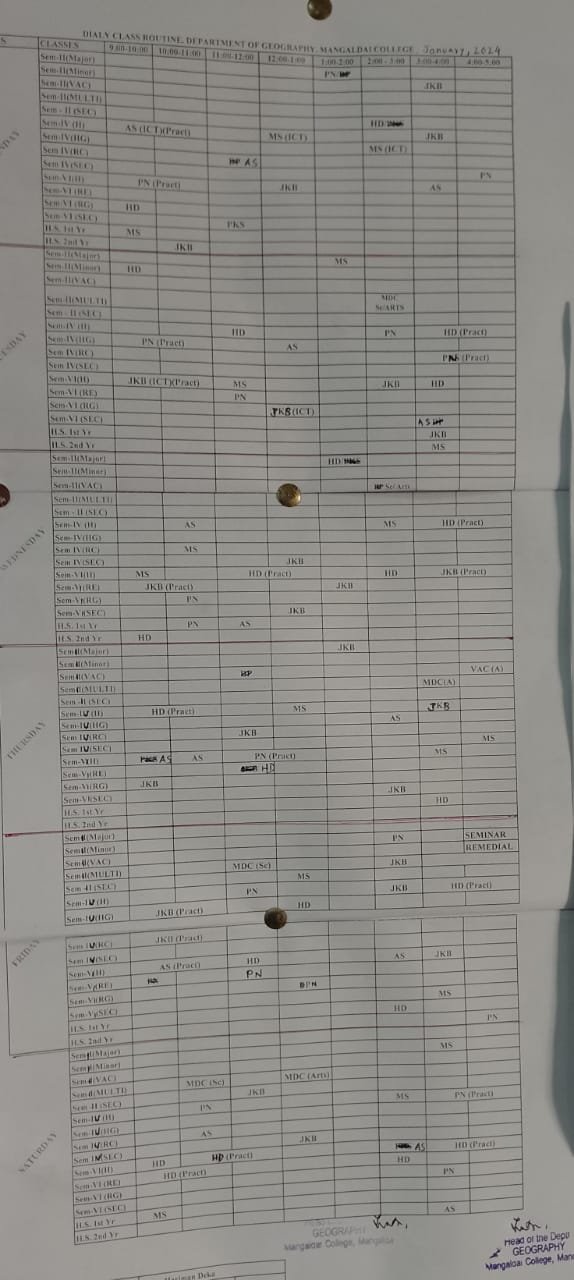 DIALY CLASS ROUTINE, DEPARTMENT OF GEOGRAPHY, MANGALDAI COLLEGE, January, 2024
CLASSES 9:00-10:00 10:00-11:00 11:00-12:00 12:00-1:00 1:00-2:00 2:00 - 3:00 3:00-4:00 4:00-5:00
Sem-II(Major)
Sem-II(Minor) PN
Sem-II(VAC) JKB
Sem-II(MULTI)
Sem - II (SEC)
Sem-IV (H) AS (ICT)(Pract) HD
Sem-IV(HG) MS (ICT) JKB
Sem IV(RC) MS (ICT)
Sem IV(SEC) AS
Sem-VI(H) PN (Pract) PN
Sem-VI (RE) JKB AS
Sem-VI (RG) HD
Sem-VI (SEC) PKS
H.S. 1st Yr MS
H.S. 2nd Yr JKB
Sem-II(Major) MS
Sem-II(Minor) HD
Sem-II(VAC)
Sem-II(MULTI) MDC Sc/ARTS
Sem - II (SEC)
Sem-IV (H) HD PN HD (Pract)
Sem-IV(HG) PN (Pract) AS
Sem IV(RC) (Pract)
Sem IV(SEC)
Sem-VI(H) JKB (ICT)(Pract) MS JKB HD
Sem-VI (RE) PN
Sem-VI (RG) JKB (ICT)
Sem-VI (SEC) AS
H.S. 1st Yr JKB
H.S. 2nd Yr MS
Sem-II(Major) HD
Sem-II(Minor)
Sem-II(VAC) Sc/Arts
Sem-II(MULTI)
WEDNESDAY
Sem - II (SEC)
Sem-IV (H) AS MS HD (Pract)
Sem-IV(HG)
Sem IV(RC) MS
Sem IV(SEC) JKB
Sem-VI(H) MS HD (Pract) HD JKB (Pract)
Sem-VI(RE) JKB (Pract) JKB
Sem-VI(RG) PN
Sem-VI(SEC) JKB
H.S. 1st Yr PN AS
H.S. 2nd Yr HD
Sem II(Major) JKB
Sem II(Minor)
Sem II(VAC) VAC (A)
Sem II(MULTI) MDC(A)
Sem -II (SEC)
Sem-IV (H) HD (Pract) MS JKB
Sem-IV(HG) AS
THURSDAY
Sem IV(RC) JKB
Sem IV(SEC) MS
Sem-VI(H) AS AS PN (Pract) MS
Sem-VI(RE) HD
Sem-VI(RG) JKB
Sem-VI(SEC) JKB
H.S. 1st Yr HD
H.S. 2nd Yr
Sem II(Major) PN SEMINAR
Sem II(Minor) REMEDIAL
Sem II(VAC) MDC (Sc) JKB
Sem II(MULTI) MS
Sem -II (SEC) PN JKB HD (Pract)
Sem-IV (H) HD
Sem-IV(HG) JKB (Pract)
FRIDAY
Sem IV(RC) JKB (Pract)
Sem IV(SEC) HD AS JKB
Sem-VI(H) AS (Pract) PN
Sem-VI(RE) PN
Sem-VI(RG) MS
Sem-VI(SEC) HD
H.S. 1st Yr PN
H.S. 2nd Yr
Sem II(Major) MS
Sem II(Minor)
Sem II(VAC) MDC (Sc) MDC (Arts)
Sem II(MULTI) JKB
Sem -II (SEC) PN MS PN (Pract)
Sem-IV (H)
Sem IV(HG) AS
SATURDAY
Sem IV(RC) JKB
Sem IV(SEC) AS HD (Pract)
Sem-VI(H) HD HD (Pract) HD
Sem-VI (RE) HD (Pract) PN
Sem-VI (RG)
Sem-VI (SEC) AS
H.S. 1st Yr MS
H.S. 2nd Yr
GEOGRAPHY
Mangaldai College, Mangaldai
Head of the Deptt
GEOGRAPHY
Mangaldai College, Man
Deka